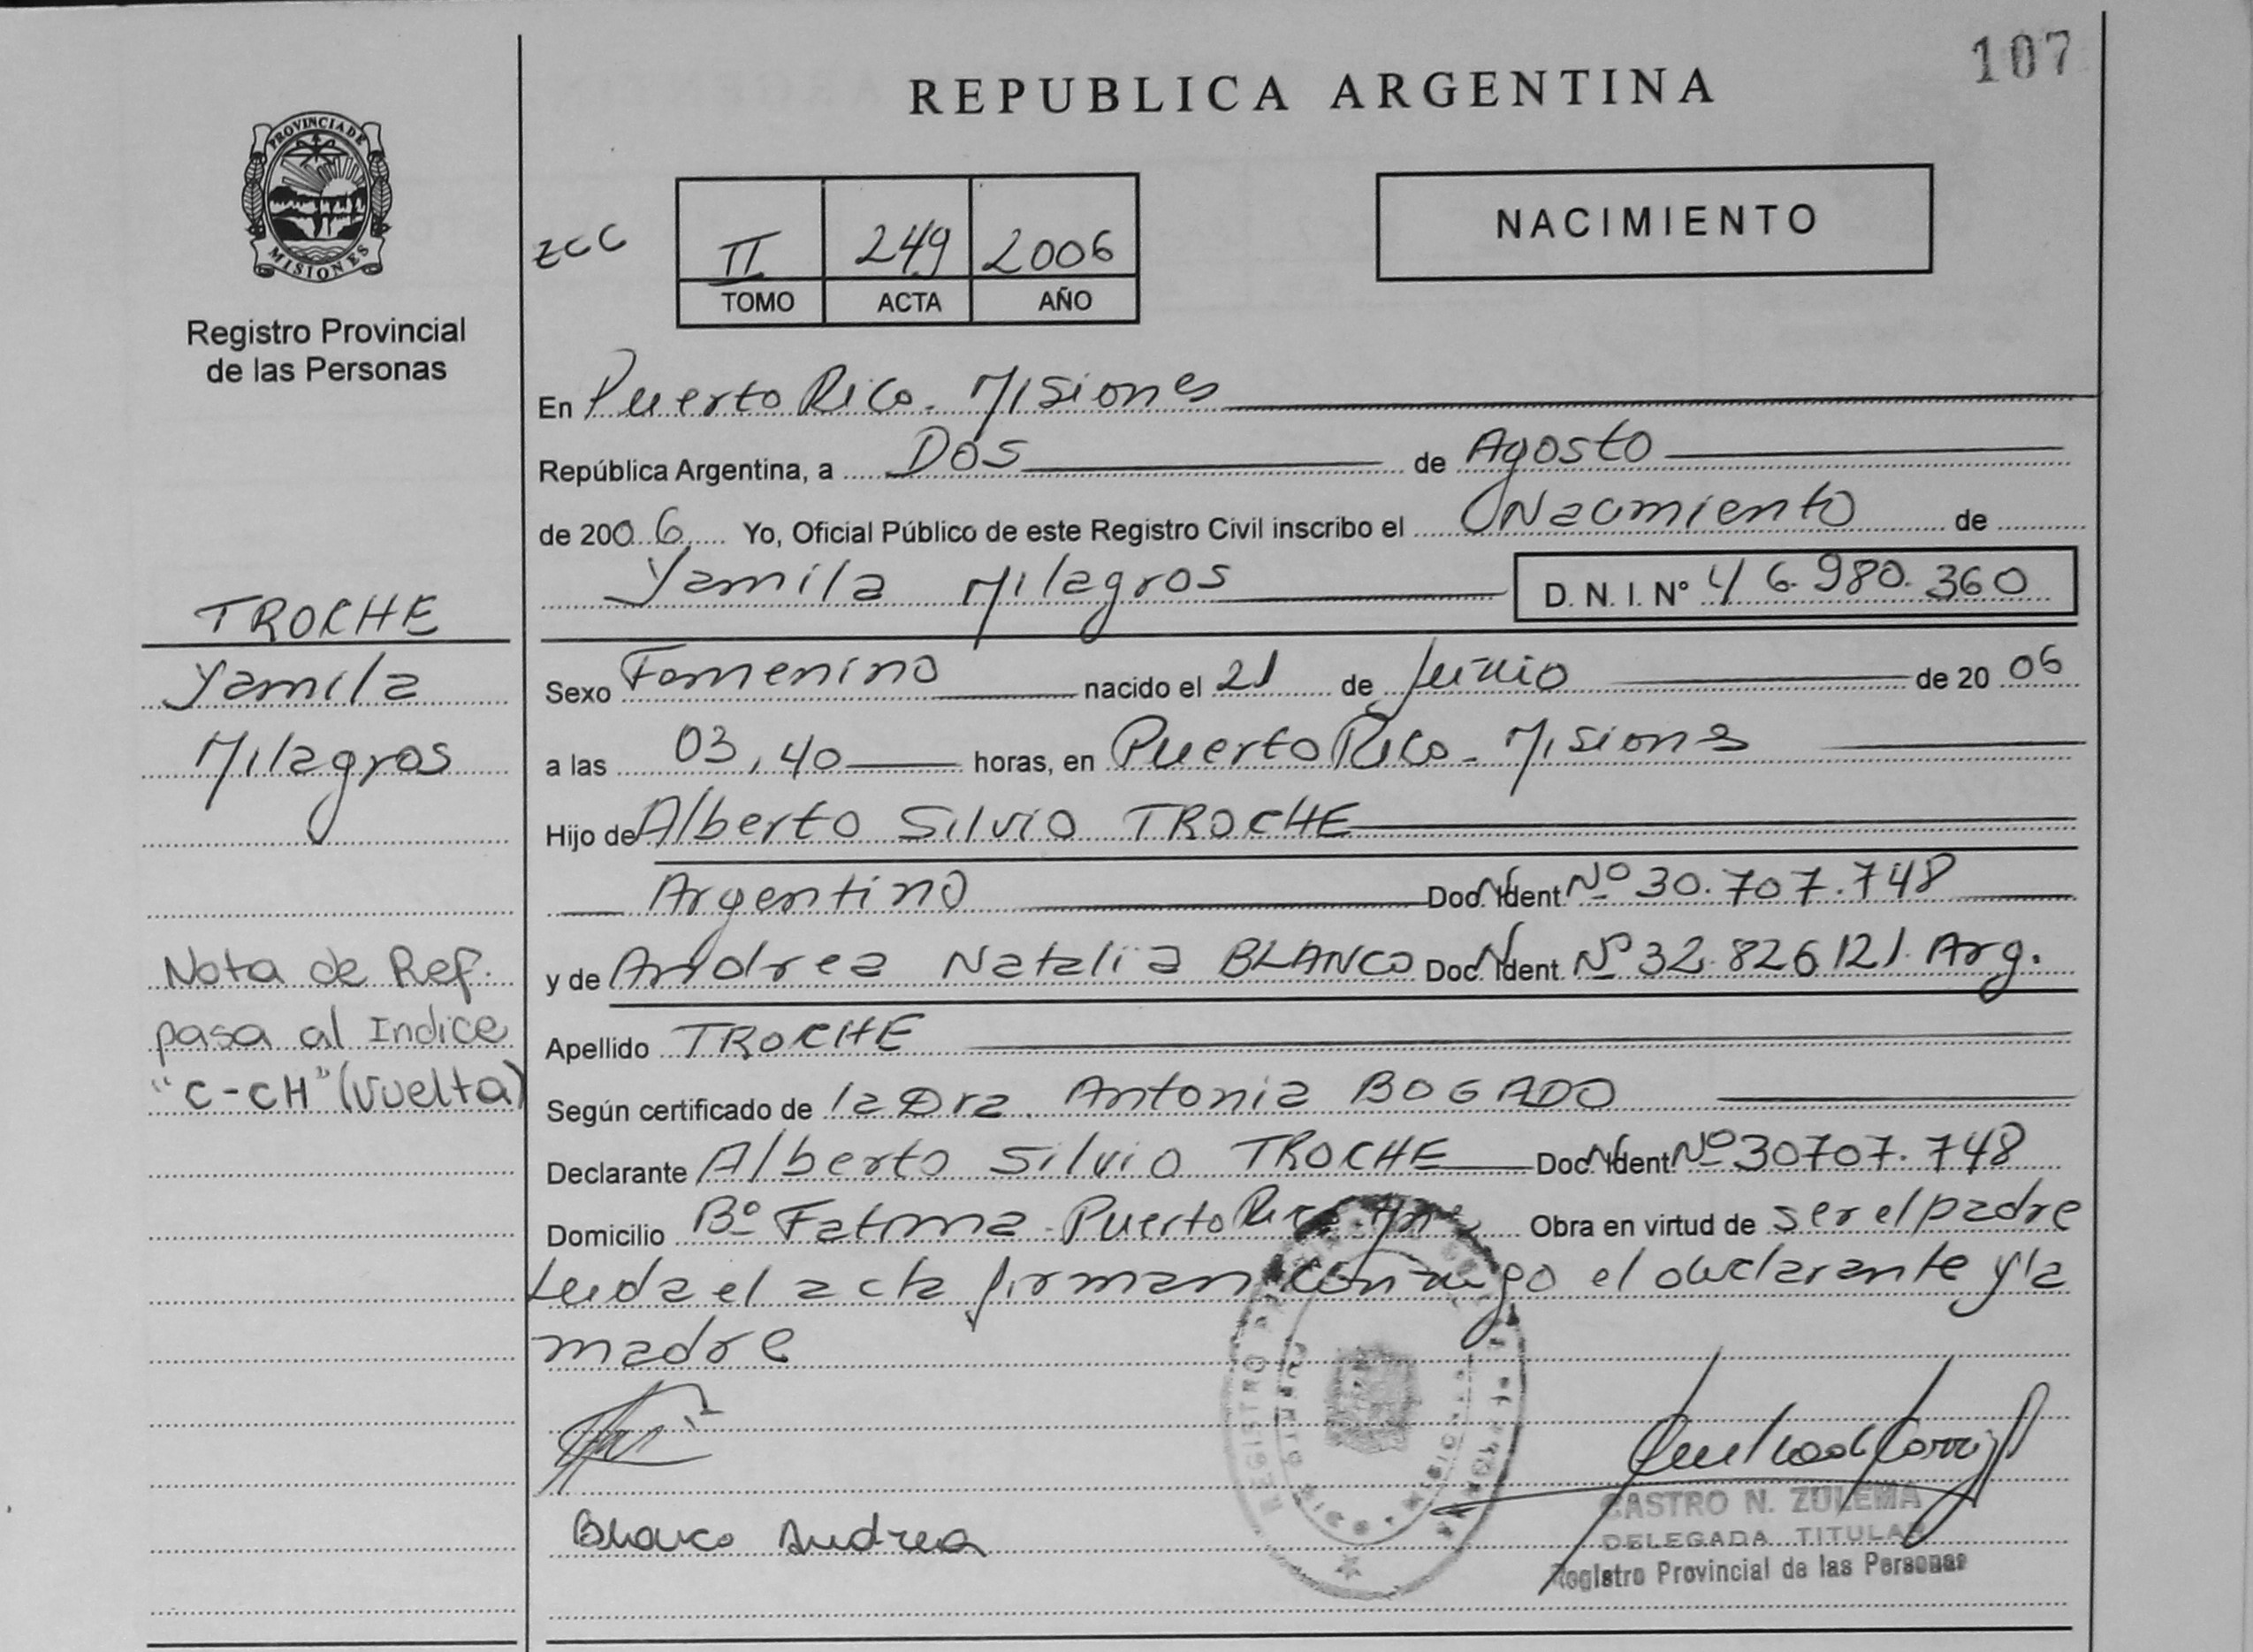 107
REPUBLICA ARGENTINA
PROVINCIA DE
MISIONES
Registro Provincial
de las Personas
zcc
II 249 2006
TOMO ACTA AÑO
NACIMIENTO
En Puerto Rico. Misiones
República Argentina, a Dos de Agosto
de 200 6 Yo, Oficial Público de este Registro Civil inscribo el Nacimiento de
Yamila Milagros D. N. I. Nº 46.980.360
TROCHE
Yamila
Milagros
Sexo Femenino nacido el 21 de Junio de 20 06
a las 03,40 horas, en Puerto Rico - Misiones
Hijo de Alberto Silvio TROCHE
Argentino Doc. Ident. Nº 30.707.748
y de Andrea Natalia BLANCO Doc. Ident. Nº 32.826121. Arg.
Nota de Ref.
pasa al Indice
"C-CH" (Vuelta)
Apellido TROCHE
Según certificado de la Dra. Antonia BOGADO
Declarante Alberto Silvio TROCHE Doc. Ident. Nº 30707.748
Domicilio Bº Fatima - Puerto Rico Obra en virtud de ser el padre
Leida el acta firman conmigo el declarante y la
madre
Blanco Andrea
REGISTRO
PUERTO RICO
CASTRO N. ZULEMA
DELEGADA TITULAR
Registro Provincial de las Personas